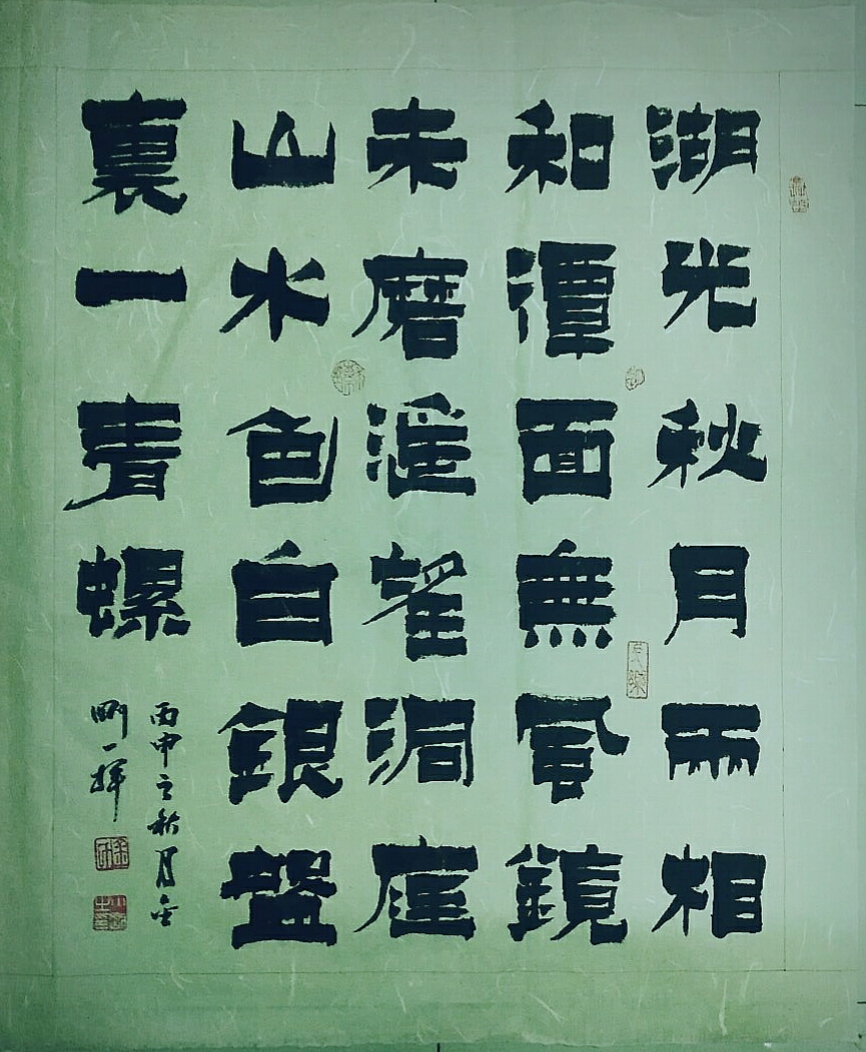 湖光秋月兩相
和潭面無風鏡
未磨遙望洞庭
山水色白銀盤
裏一青螺
丙申之秋月金
揮